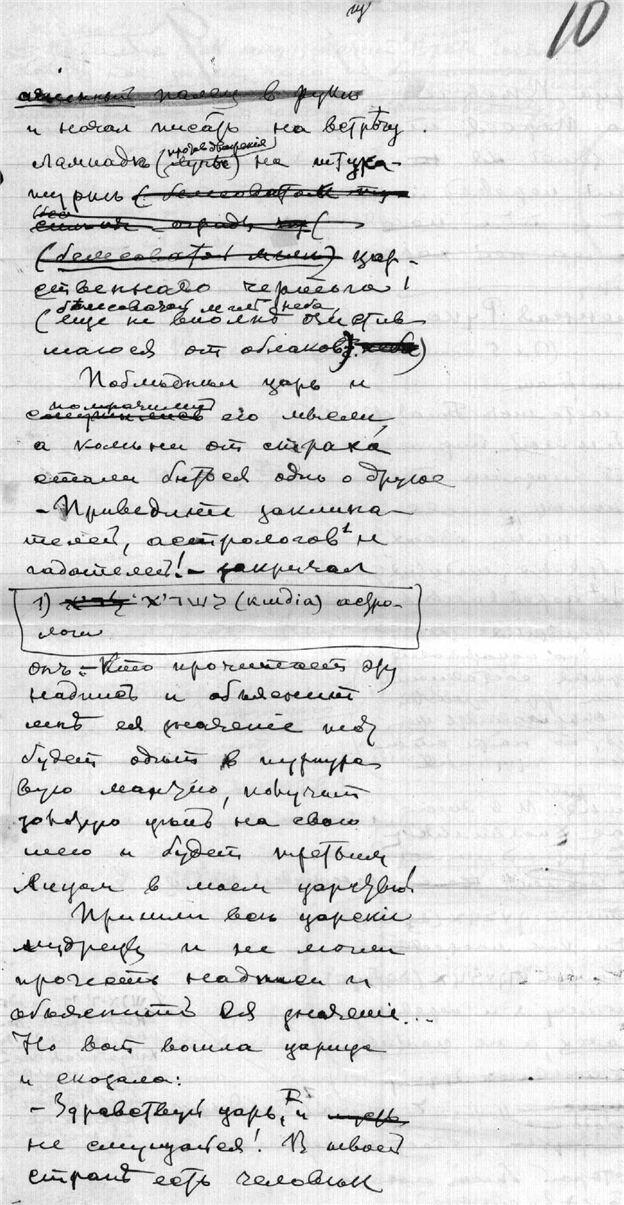 10
огненный палец в руки
и начал писать на встрѣчу
прохожденія
лампадѣ ( ) на штука-
туркѣ (бѣлесоватой
(бѣлесоватой мглы) цар-
ственнаго чертога!
бѣлесоватой мглѣ неба
(еще не вполнѣ очистив-
шагося от облаков)
Поблѣднѣл царь и
помрачились его мысли,
а колѣни от страха
стали биться одно о другое
– Приведите заклина-
телей, астрологов¹ и
гадателей! – закричал
1) כשדיא (кишdia) астро-
логи
он. – Кто прочитает эту
надпись и объяснит
мнѣ ея значеніе тот
будет одѣт в пурпуро-
вую мантію, получит
золотую цѣпь на свою
шею и будет третьим
лицом в моем царствѣ!
Пришли всѣ царскіе
мудрецы и не могли
прочесть надписи и
объяснить ея значеніе...
Но вот вошла царица
и сказала:
– Здравствуй царь, и
не смущайся! В твоей
странѣ есть человѣк